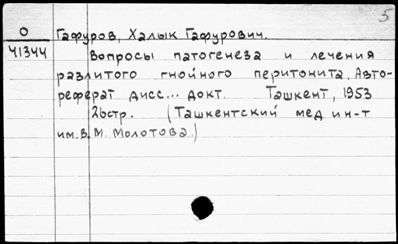 5
О Гафуров, Халык Гафурович.
41344 Вопросы патогенеза и лечения
разлитого гнойного перитонита. Авто-
реферат дисс... докт. Ташкент, 1953
26стр. (Ташкентский мед ин-т
им. В. М. Молотова.)